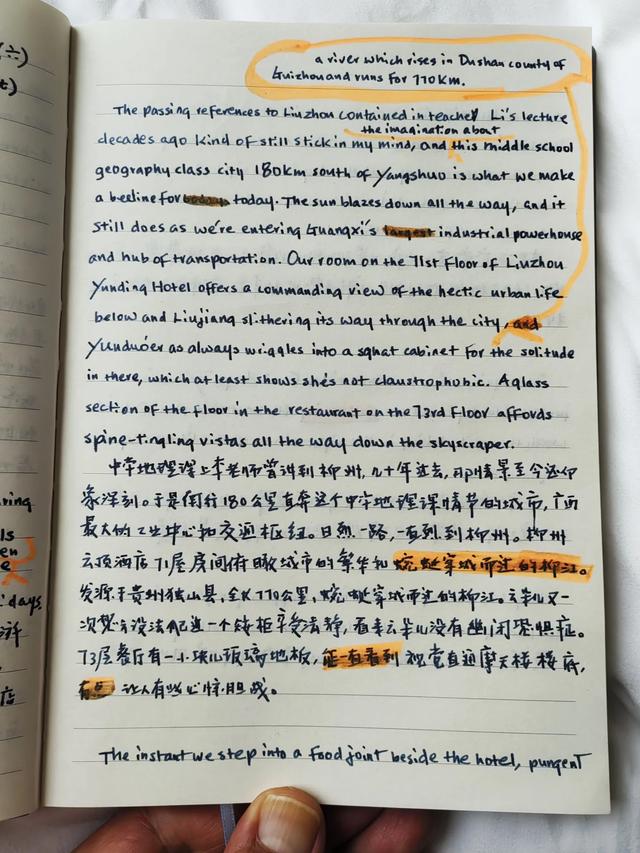 (六)
t)
a river which rises in Dushan county of
Guizhou and runs for 770 km.
The passing references to Liuzhou contained in teacher Li's lecture
the imagination about
decades ago kind of still stick in my mind, and this middle school
geography class city 180km south of Yangshuo is what we make
a beeline for today. The sun blazes down all the way, and it
still does as we're entering Guangxi's largest industrial powerhouse
and hub of transportation. Our room on the 71st floor of Liuzhou
Yunding Hotel offers a commanding view of the hectic urban life
below and Liujiang slithering its way through the city, and
Yunduo'er as always wriggles into a squat cabinet for the solitude
in there, which at least shows she's not claustrophobic. A glass
section of the floor in the restaurant on the 73rd floor affords
spine-tingling vistas all the way down the skyscraper.
中学地理课上李老师曾讲到柳州,几十年过去,那情景至今还印
象深刻。于是南行180公里直奔这个中学地理课情节的城市,广西
最大的工业中心和交通枢纽。日烈一路,一直烈到柳州。柳州
云顶酒店71层房间俯瞰城市的繁华和蜿蜒穿城而过的柳江。
发源于贵州独山县,全长770公里,蜿蜒穿城而过的柳江。云朵儿又一
次想方设法钻进一个矮柜享受清静,看来云朵儿没有幽闭恐惧症。
73层餐厅有一小块儿玻璃地板,能一直看到视觉直通摩天楼楼底,
让人有些心惊胆战。
The instant we step into a food joint beside the hotel, pungent
ring
ls
en
e
days
游
店